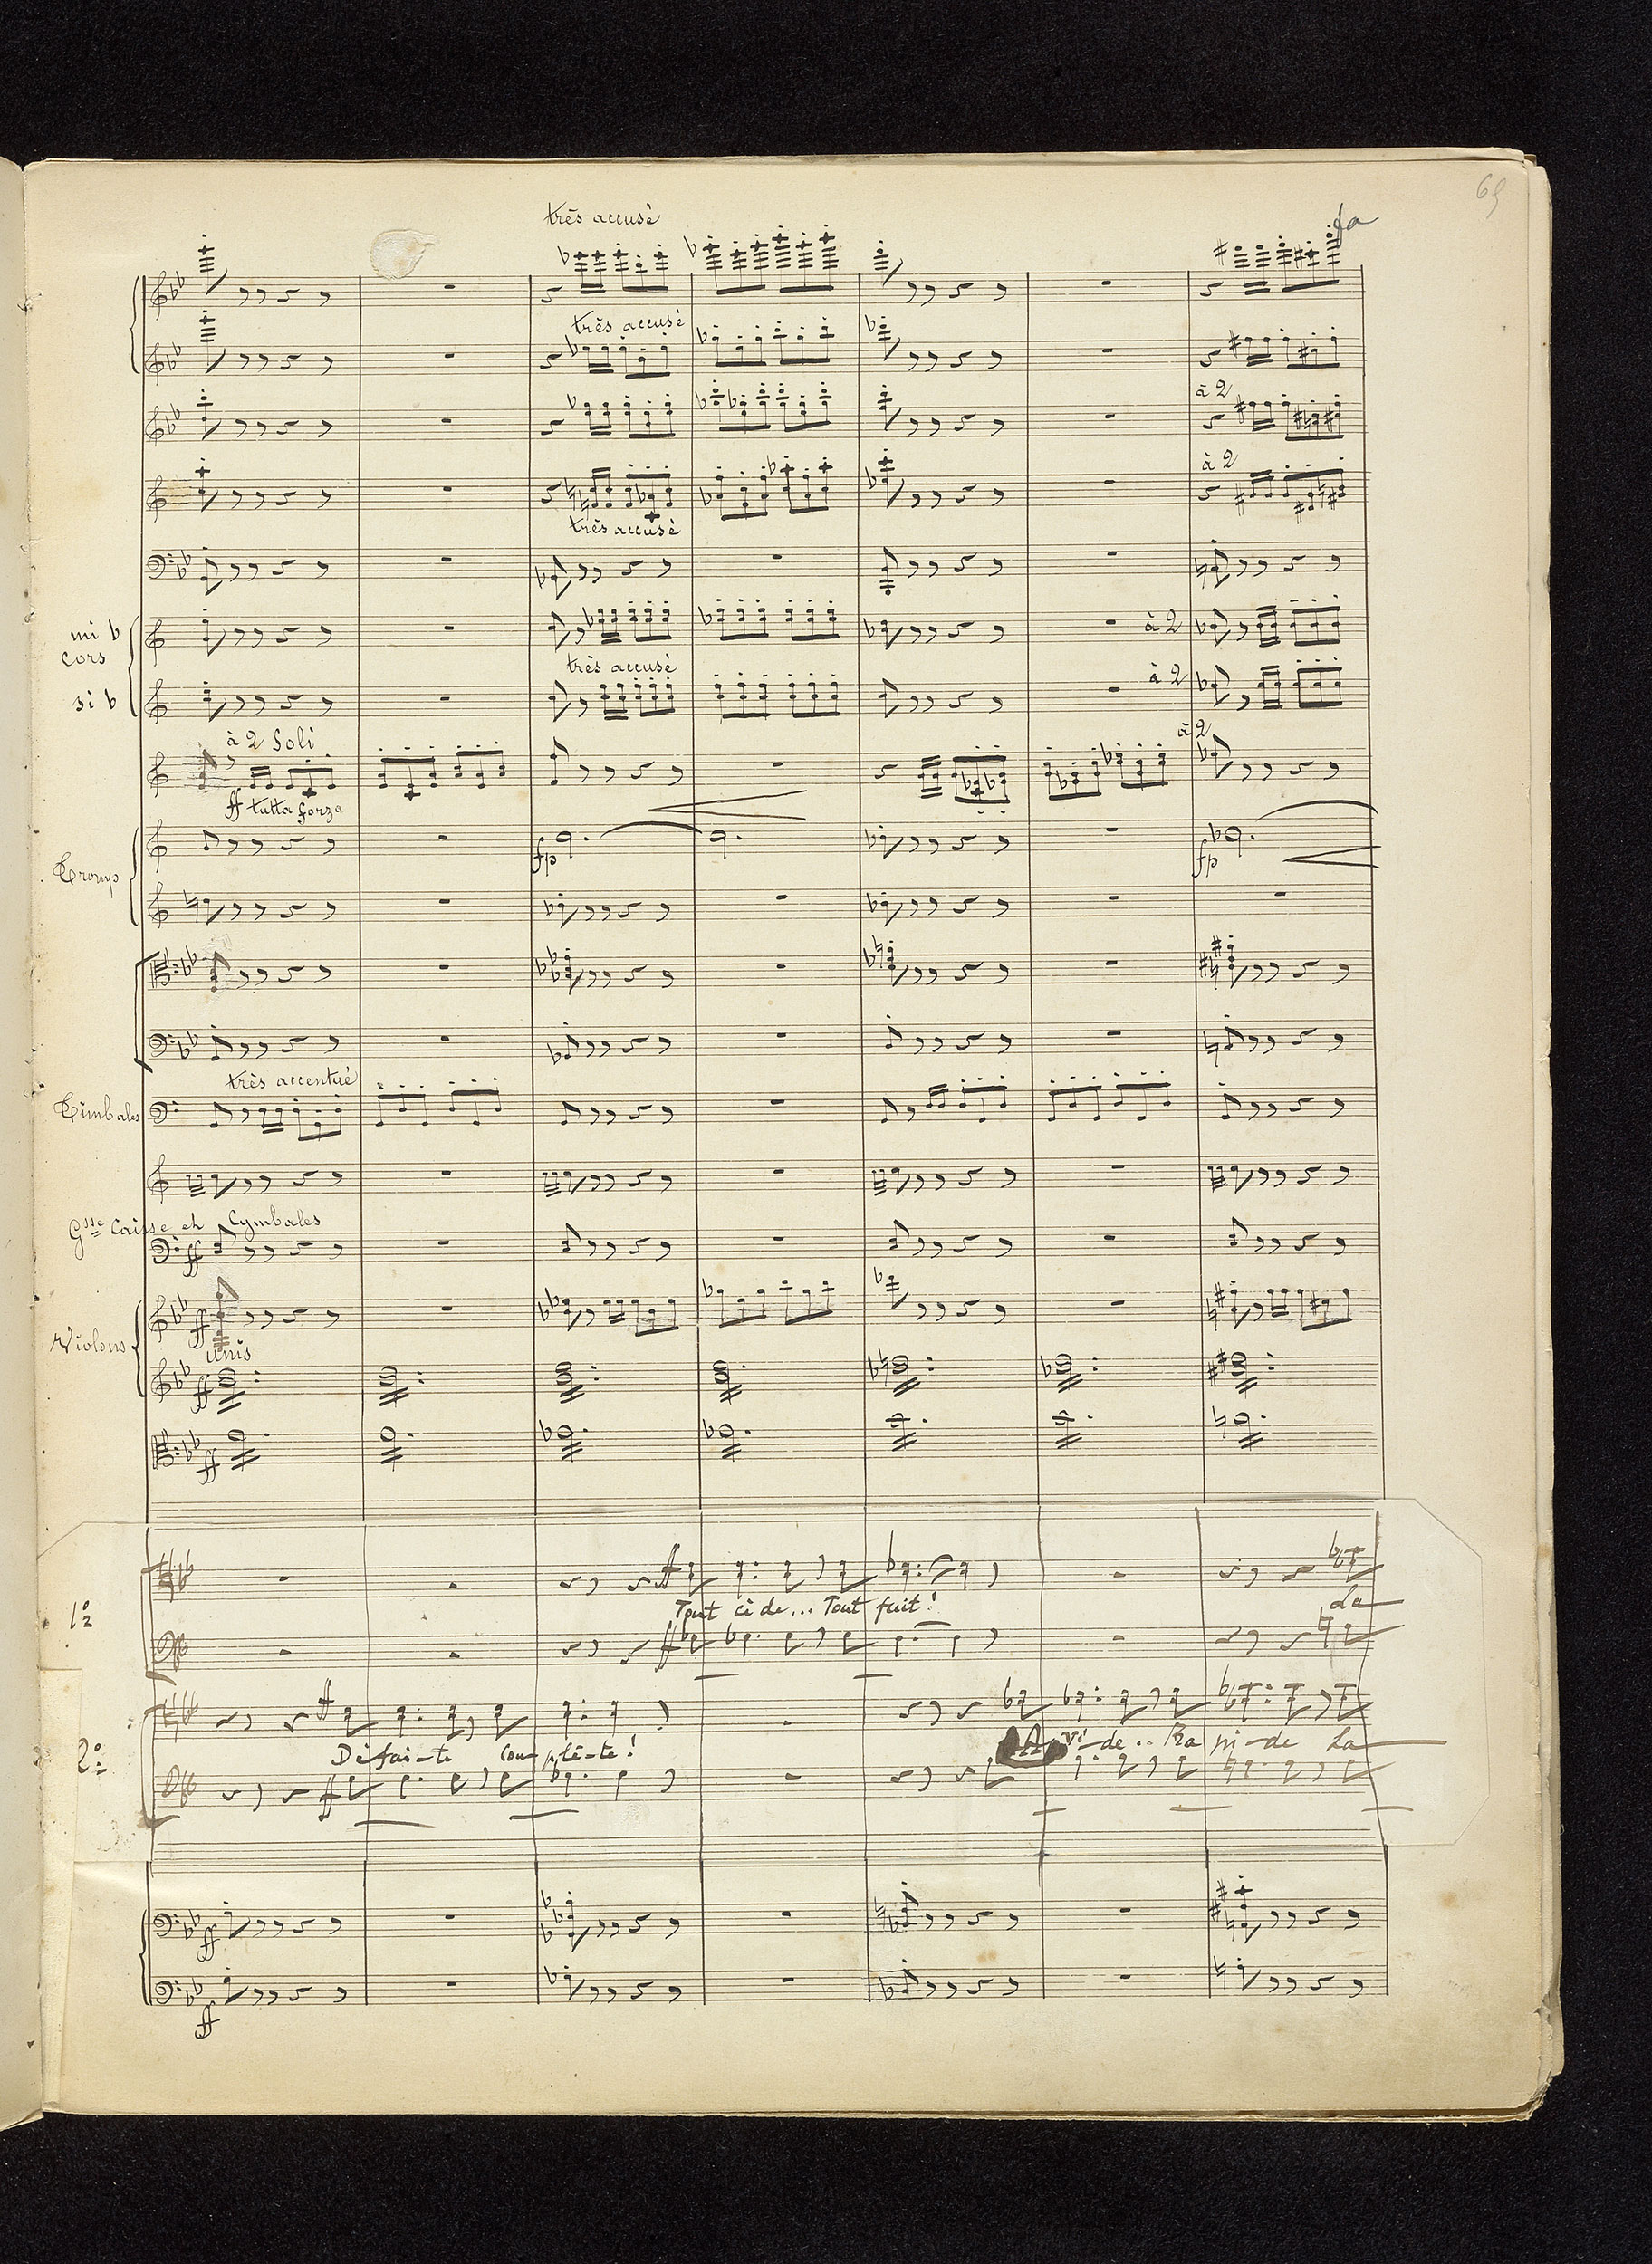 65
très accusé
fa
très accusé
à 2
à 2
très accusé
mi b
cors
à 2
très accusé
si b
à 2
à 2 Soli
à 2
ff tutta forza
fp
fp
Tromp
très accentué
Timbales
Gsse Caisse et Cymbales
ff
ff
Violons
unis
ff
ff
1º
2
ff
Tout cède... Tout fuit!
La
ff
2º
ff
Défai-te Com-plè-te!
A-vi-de.. Ra pi-de La
ff
ff
ff